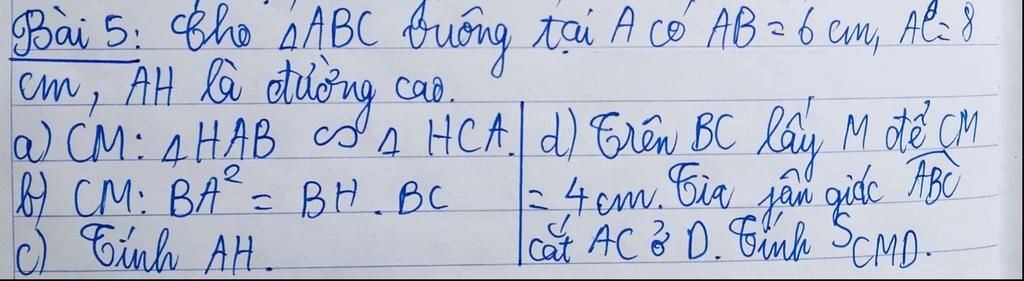 Bài 5: Cho △ABC vuông tại A có AB = 6 cm, AC = 8
cm, AH là đường cao.
a) CM: △HAB ∽ △HCA.
b) CM: BA² = BH . BC
c) Tính AH.
d) Trên BC lấy M để CM
= 4 cm. Tia phân giác ABC
cắt AC ở D. Tính S_CMD.